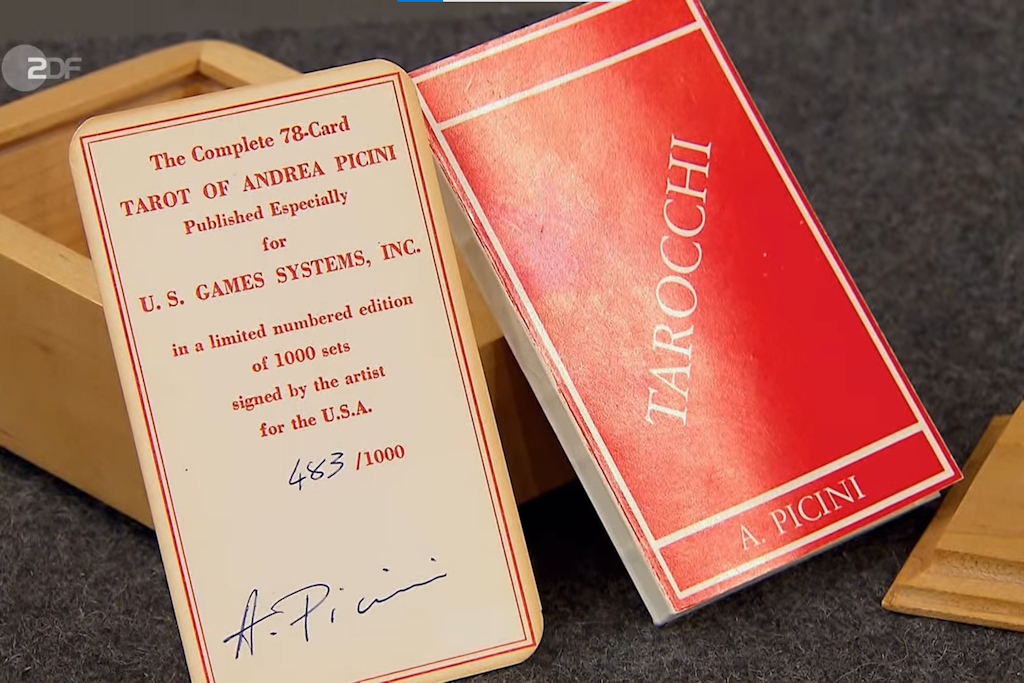 ZDF
The Complete 78-Card
TAROT OF ANDREA PICINI
Published Especially
for
U. S. GAMES SYSTEMS, INC.
in a limited numbered edition
of 1000 sets
signed by the artist
for the U.S.A.
483 /1000
A. Picini
TAROCCHI
A. PICINI